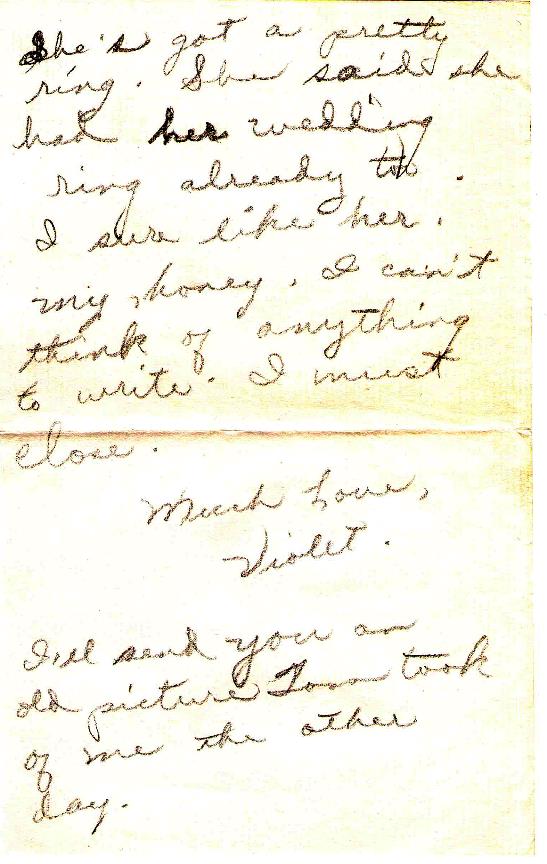 She's got a pretty
ring. She said she
had her wedding
ring already too.
I sure like her.
my, honey, I can't
think of anything
to write. I must
close.
Much Love,
Violet.
I'll send you an
old picture Tom took
of me the other
day.